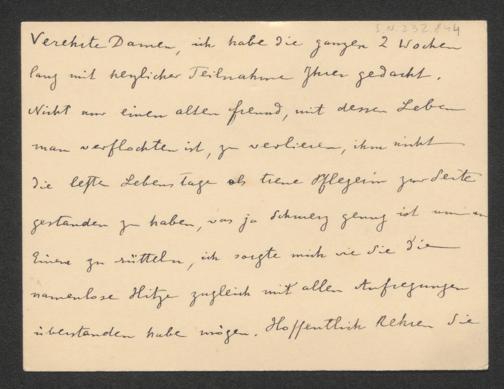 I.N. 232.844
Verehrte Damen, ich habe die ganzen 2 Wochen
lang mit herzlicher Teilnahme Ihrer gedacht.
Nicht nur einen alten Freund, mit dessen Leben
man verflochten ist, zu verlieren, ihm nicht
die letzten Lebenstage als treue Pflegerin zur Seite
gestanden zu haben, was ja Schmerz genug ist um an
Einem zu rütteln, ich sorgte mich wie Sie die
namenlose Hitze zugleich mit allen Aufregungen
überstanden habe mögen. Hoffentlich kehren Sie